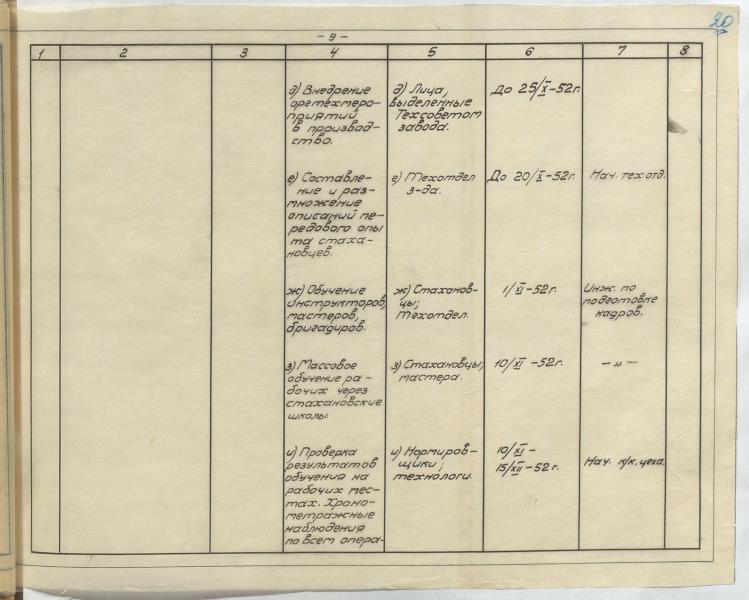 20
- 9 -
1 2 3 4 5 6 7 8
д) Внедрение
оргтехмеро-
приятий
в производ-
ство.
д) Лица,
выделенные
Техсоветом
завода.
До 25/X-52г.
е) Составле-
ние и раз-
множение
описаний пе-
редового опы
та стаха-
новцев.
г) Техотдел
з-да.
До 20/X-52г.
Нач. тех.отд.
ж) Обучение
инструкторов,
мастеров,
бригадиров.
ж) Стаханов-
цы;
техотдел.
1/XI-52г.
Инж. по
подготовке
кадров.
з) Массовое
обучение ра-
бочих через
стахановские
школы.
з) Стахановцы;
мастера.
10/XI-52г.
— „ —
и) Проверка
результатов
обучения на
рабочих мес-
тах. Хроно-
метражные
наблюдения
по всем опера-
и) Нормиров-
щики;
технологи.
10/XI-
15/XII-52г.
Нач. к/к. цеха.